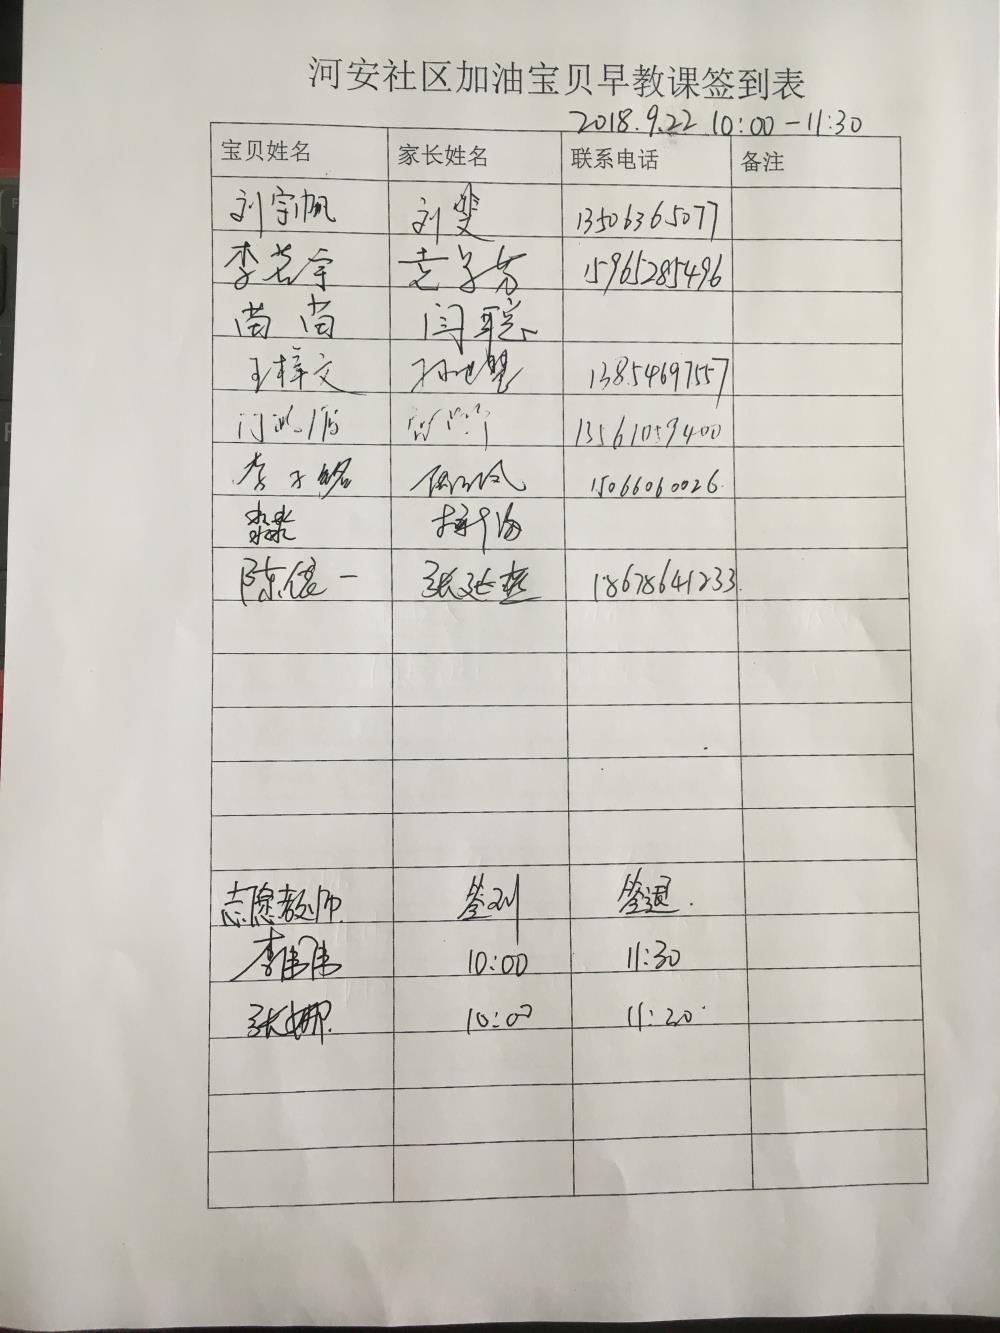 河安社区加油宝贝早教课签到表
2018.9.22 10:00-11:30
宝贝姓名 家长姓名 联系电话 备注
刘宇帆 刘斐 13506365077
李 宇 15965285496
苗苗 闫聪
王梓文 13854697557
13561059400
李子铭 15066060026
淼淼
陈信一 张延燕 18678641233
志愿教师 签到 签退
李伟伟 10:00 11:30
张娜 10:00 11:30